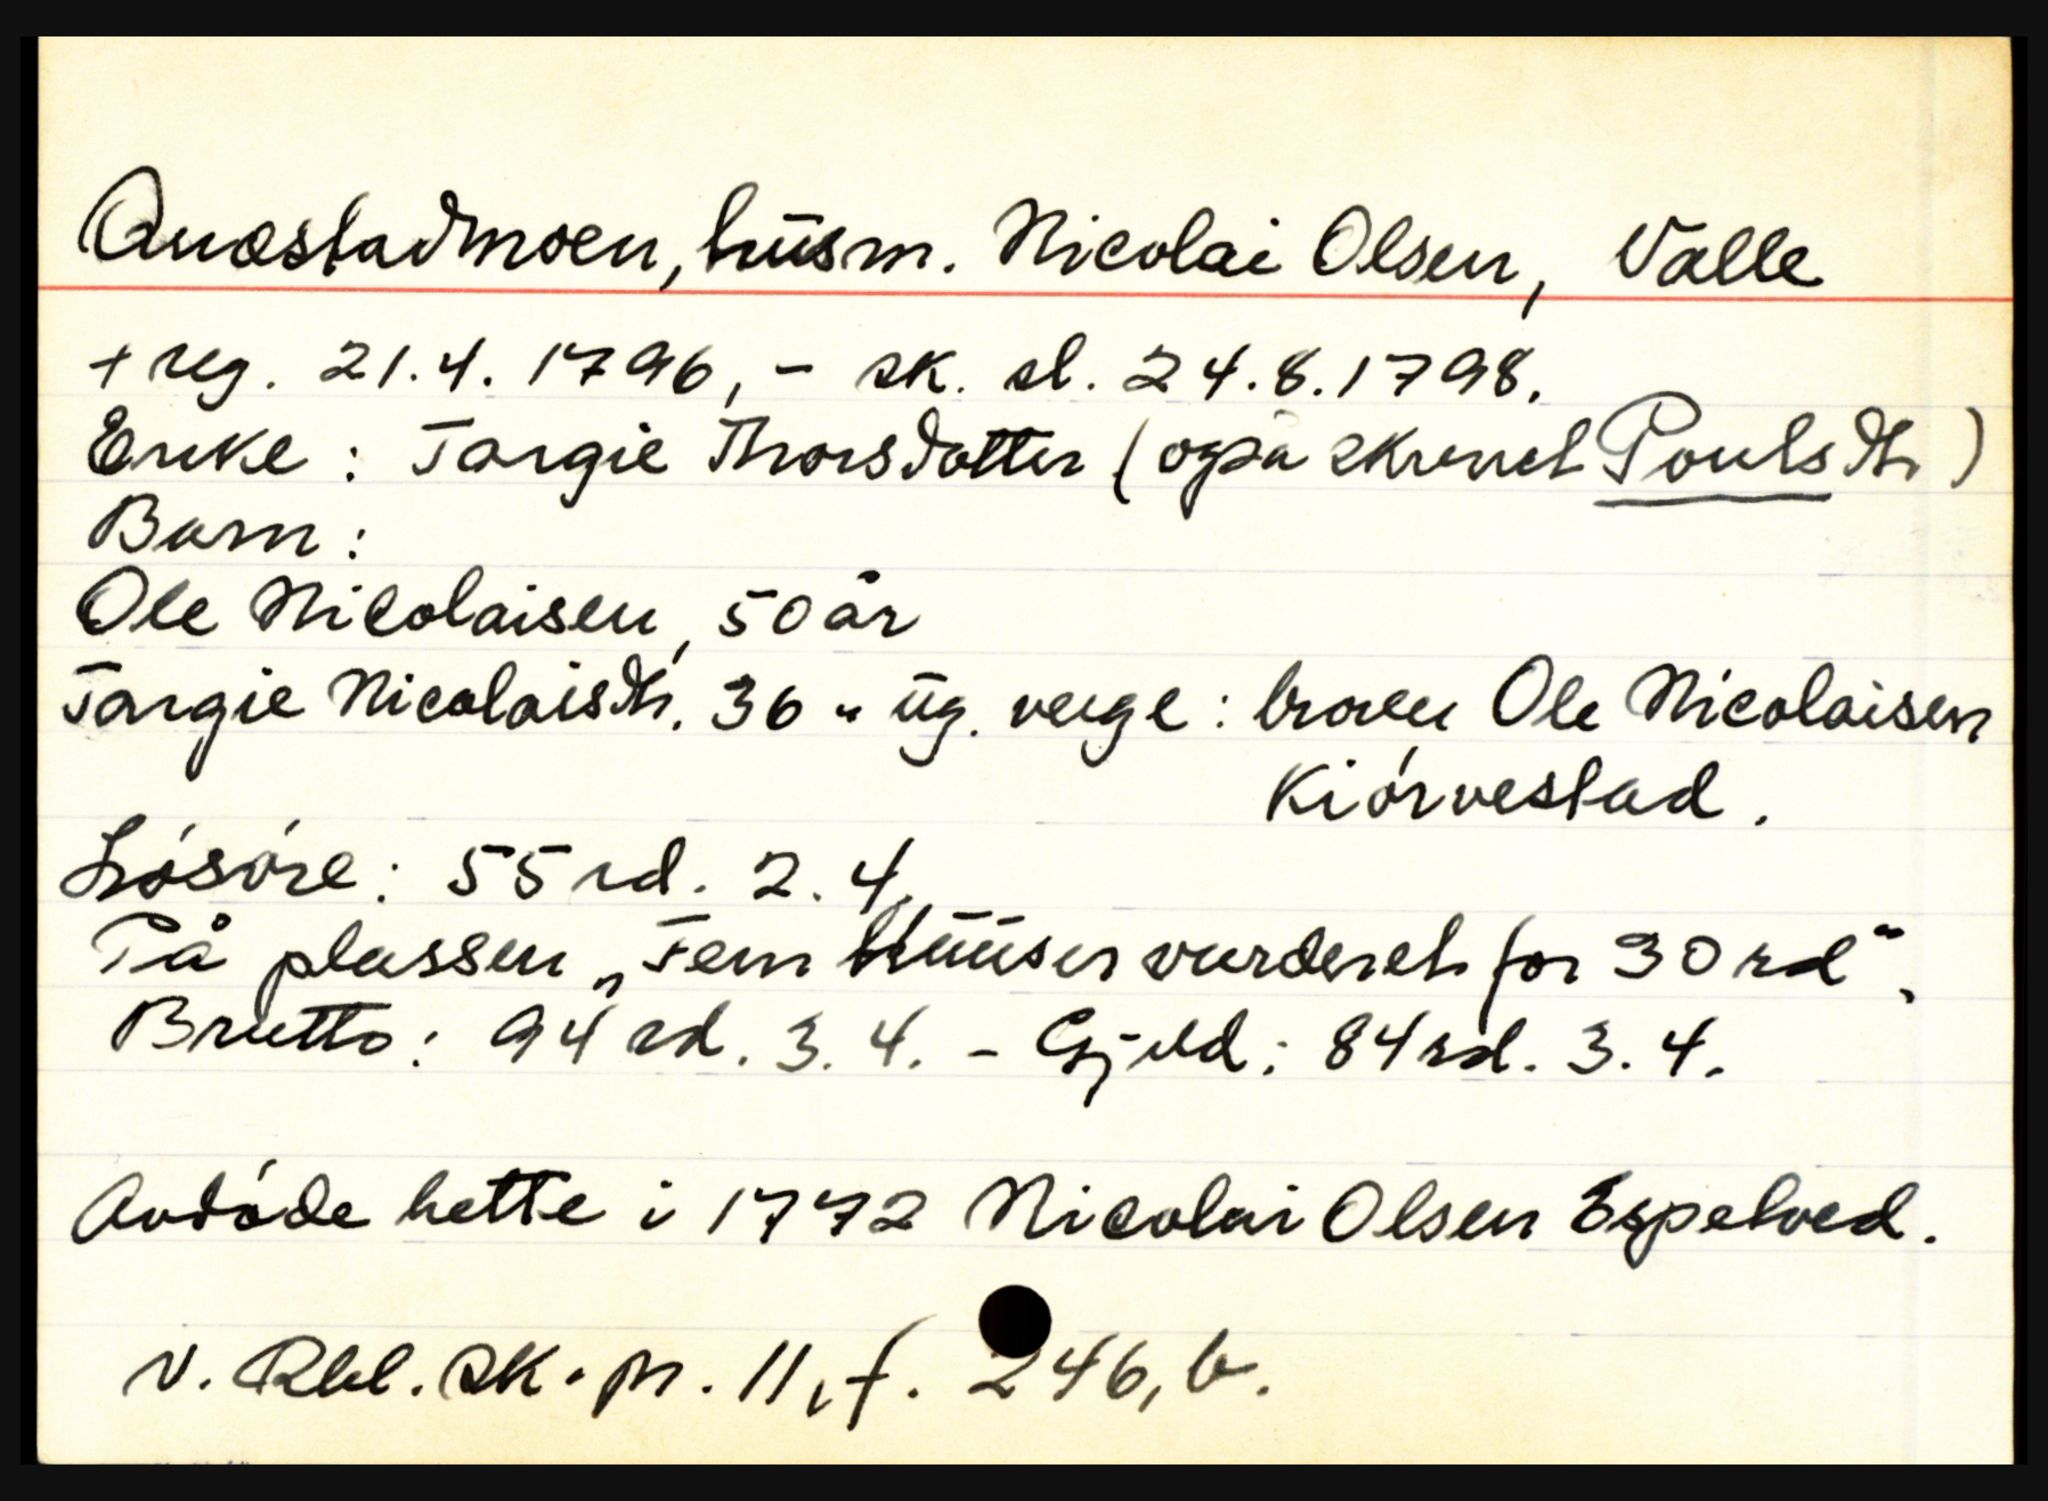 Quæstadmoen, husm. Nicolai Olsen, Valle
+ reg. 21.4.1796, - sk. sl. 24.8.1798.
Enke: Targie Thorsdotter (også skrevet Poulsdtr)
Barn:
Ole Nicolaisen, 50 år
Targie Nicolaisdtr. 36 " ug. verge: broren Ole Nicolaisen
Kiórvestad.
Lósóre: 55 rd. 2. 4.
På plassen „Fem Huuser vurderet for 30 rd“.
Brutto: 94 rd. 3. 4. - Gjeld: 84 rd. 3. 4.
Avdóde hette i 1772 Nicolai Olsen Espetved.
V. Rbl. sk. pr. 11, f. 246, b.